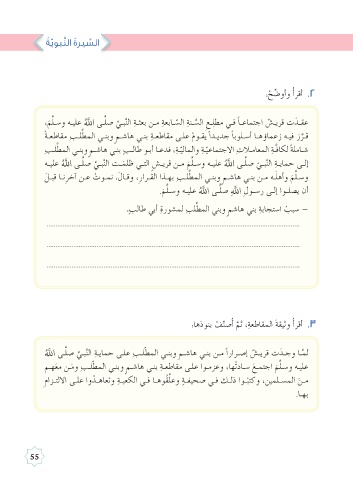 السّيرةُ النّبويّة
٢. أقرأُ وأوضّحُ.
عقـدَت قريـشٌ اجتماعـاً فـي مطلـعِ السَّـنةِ السّـابعةِ مـن بعثـةِ النّبـيِّ صلَّـى اللهُ عليـه وسـلَّمَ،
قـرَّرَ فيـه زعماؤهـا أسـلوباً جديـداً يقـومُ على مقاطعـةِ بنـي هاشـمٍ وبنـي المطَّلـبِ مقاطعـةً
شـاملةً لكافّـةِ المعامـلاتِ الاجتماعيّـةِ والماليّـةِ، فدعـا أبـو طالـبٍ بنـي هاشـمٍ وبنـي المطَّلـبِ
إلـى حمايـةِ النّبـيِّ صلَّـى اللهُ عليـه وسـلَّمَ مـن قريـشٍ التـي ظلمَـت النّبـيَّ صلَّـى اللهُ عليـه
وسـلَّمَ وأهلَـه مـن بنـي هاشـمٍ وبنـي المطَّلـبِ بهـذا القـرارِ، وقـالَ: نمـوتُ عـن آخرِنـا قبـلَ
أن يصلـوا إلـى رسـولِ اللهِ صلَّـى اللهُ عليـه وسـلَّمَ.
– سببُ استجابةِ بني هاشمٍ وبني المطَّلبِ لمشورةِ أبي طالبٍ.
٣. أقرأُ وثيقةَ المقاطعةِ، ثمَّ أُصنّفُ بنودَها:
لمّـا وجـدَت قريـشٌ إصـراراً مـن بنـي هاشـمٍ وبنـي المطَّلـبِ علـى حمايـةِ النّبـيِّ صلَّـى اللهُ
عليـه وسـلَّمَ اجتمـعَ سـادتُها، وعزمـوا علـى مقاطعـةِ بنـي هاشـمٍ وبنـي المطَّلـبِ ومَـن معَهـم
مـنَ المسـلمينَ، وكتبُـوا ذلـك فـي صحيفـةٍ وعلَّقُوهـا فـي الكعبـةِ وتعاهـدُوا علـى الالتـزامِ
بهـا.
55